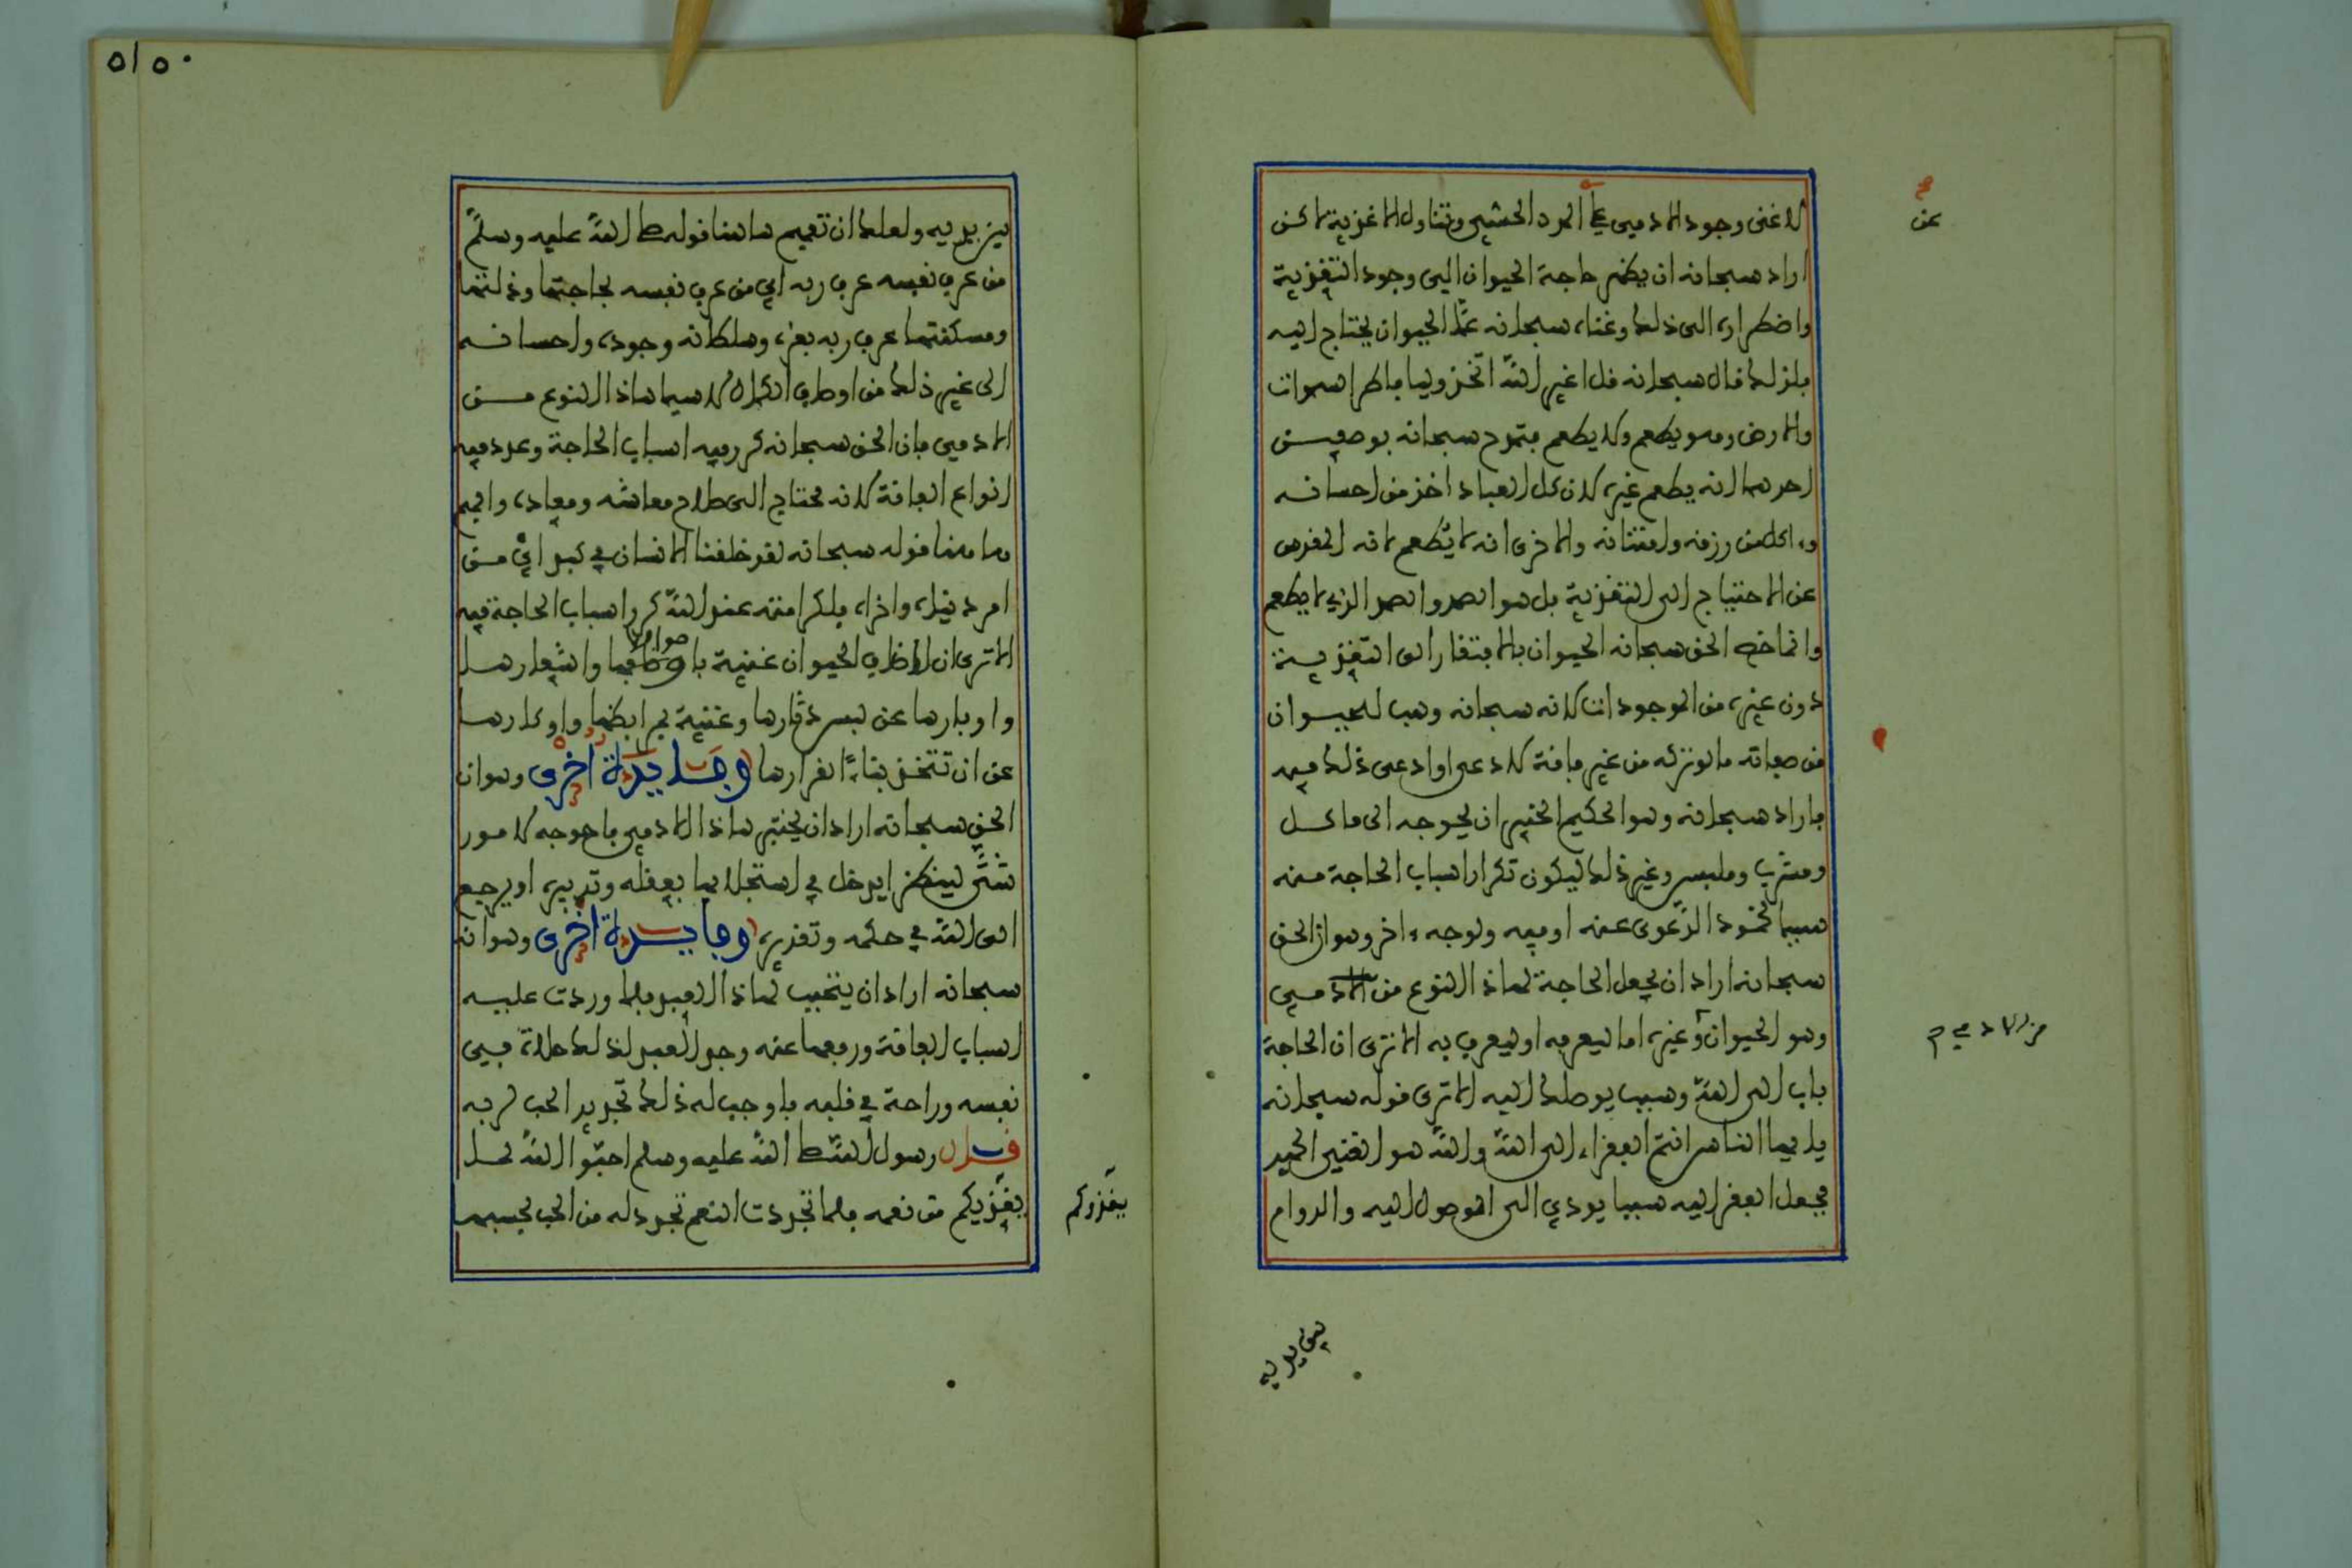 لاغنى وجود الادمي عن المدد الحسي وتناول الاغذية لاكن
اراد سبحانه ان يظهر حاجة الحيوان الى وجود التغذية
واضطراره الى ذلك وغناه سبحانه عما الحيوان يحتاج اليه
فلذلك قال سبحانه قل اغير الله اتخذ وليا فاطر السموات
والارض وهو يطعم ولا يطعم فتمدح سبحانه بوصفين
احدهما انه يطعم غيره لان كل العباد اخذ من احسانه
وءاكل من رزقه وامتنانه والاخرى انه لا يُطعم لانه المقدس
عن الاحتياج الى التغذية بل هو الصمد والصمد الذي لا يطعم
وانما خص الحق سبحانه الحيوان بالافتقار الى التغذية
دون غيره من الموجودات لانه سبحانه وهب للحيوان
من صفاته ما لو تركه من غير فاقة لادعى او ادعي ذلك فيه
فاراد سبحانه وهو الحكيم الخبير ان يحوجه الى ماكل
ومشرب وملبس وغير ذلك ليكون تكرار اسباب الحاجة منه
سببا لخمود الدعوى عنه او فيه ولوجه ءاخر وهو ان الحق
سبحانه اراد ان يجعل الحاجة لهاذا النوع من الادمي
وهو الحيوان وغيره اما ليعرفه او ليعرف به الا ترى ان الحاجة
باب الى الله وسبب يوصلك اليه الا ترى قوله سبحانه
يا ايها الناس انتم الفقراء الى الله والله هو الغني الحميد
فجعل الفقر اليه سببا يودي الى الوصول اليه والدوام
عن
من الادمي
بين يديه
٥١٥٠
بين يديه ولعلك ان تفهم هاهنا قوله صلى الله عليه وسلم
من عرف نفسه عرف ربه اي من عرف نفسه بحاجتها وذلتها
ومسكنتها عرف ربه بعزه وسلطانه وجوده واحسانه
الى غير ذلك من اوصاف الكمال لا سيما هاذا النوع من
الادمي فان الحق سبحانه كرر فيه اسباب الحاجة وعدد فيه
انواع الفاقة لانه محتاج الى صلاح معاشه ومعاده وافهم
هاهنا قوله سبحانه لقد خلقنا الانسان في كبد اي من
امر دنياه واخراه فلكرامته عند الله كرر اسباب الحاجة فيه
الا ترى ان اصناف الحيوان غنية باصوافها واشعارها
واوبارها عن لبس دثارها وغنية بمرابضها واوكارها
عن ان تتخذ بناء لقرارها وفايدة اخرى وهو ان
الحق سبحانه اراد ان يختبر هاذا الادمي فاحوجه لامور
شتى لينظر ايدخل في استجلابها بعقله وتدبيره او يرجع
الى الله في حكمه وتقديره وفايدة اخرى وهو انه
سبحانه اراد ان يتحبب لهاذا العبد فلما وردت عليه
اسباب الفاقة ورفعها عنه وجد العبد لذلك حلاوة في
نفسه وراحة في قلبه فاوجب له ذلك تجديد الحب لربه
قال رسول الله صلى الله عليه وسلم احبوا الله لما
يغذيكم من نعمه فلما تجددت النعم تجدد له من الحب بحسبها
يغذوكم